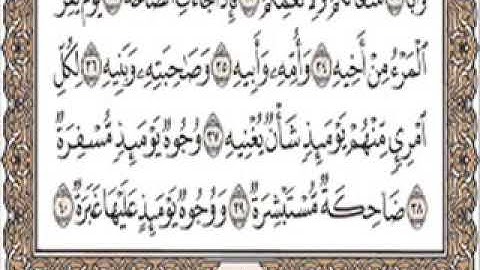 مَتَاعًا لَكُمْ وَلِأَنْعَامِكُمْ فَإِذَا جَاءَتِ الصَّاخَّةُ يَوْمَ يَفِرُّ
الْمَرْءُ مِنْ أَخِيهِ ٣٤ وَأُمِّهِ وَأَبِيهِ ٣٥ وَصَاحِبَتِهِ وَبَنِيهِ ٣٦ لِكُلِّ
امْرِئٍ مِنْهُمْ يَوْمَئِذٍ شَأْنٌ يُغْنِيهِ ٣٧ وُجُوهٌ يَوْمَئِذٍ مُسْفِرَةٌ
٣٨ ضَاحِكَةٌ مُسْتَبْشِرَةٌ ٣٩ وَوُجُوهٌ يَوْمَئِذٍ عَلَيْهَا غَبَرَةٌ ٤٠